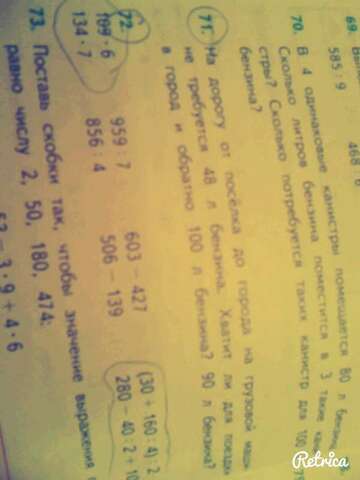 69.
585 : 9 468 : 6
70. В 4 одинаковые канистры помещается 80 л бензина.
Сколько литров бензина поместится в 3 такие
стры? Сколько потребуется таких канистр для 100 л
бензина?
71. На дорогу от посёлка до города на грузовой маши-
не требуется 48 л бензина. Хватит ли для поездки
в город и обратно 100 л бензина? 90 л бензина?
72.
109 · 6 959 : 7 603 − 427 (30 + 160 : 4) : 2
134 · 7 856 : 4 506 − 139 280 − 40 : 2 + 10
73. Поставь скобки так, чтобы значение выражения
равно числу 2, 50, 180, 474:
− 3 · 9 + 4 · 6
Retrica